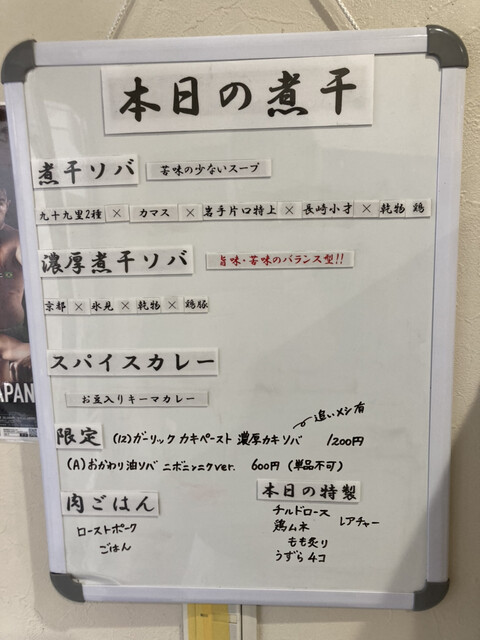 本日の煮干
煮干ソバ 苦味の少ないスープ
九十九里2種 × カマス × 岩手片口特上 × 長崎小才 × 乾物 鶏
濃厚煮干ソバ 旨味・苦味のバランス型!!
京都 × 氷見 × 乾物 × 鶏豚
スパイスカレー
お豆入りキーマカレー
追いメシ有
限定 (12)ガーリック カキペースト 濃厚カキソバ 1200円
(A)おかわり油ソバ ニボニンニクver. 600円 (単品不可)
肉ごはん
ローストポーク
ごはん
本日の特製
チルドロース
鶏ムネ レアチャー
もも炙り
うずら4コ
APAN